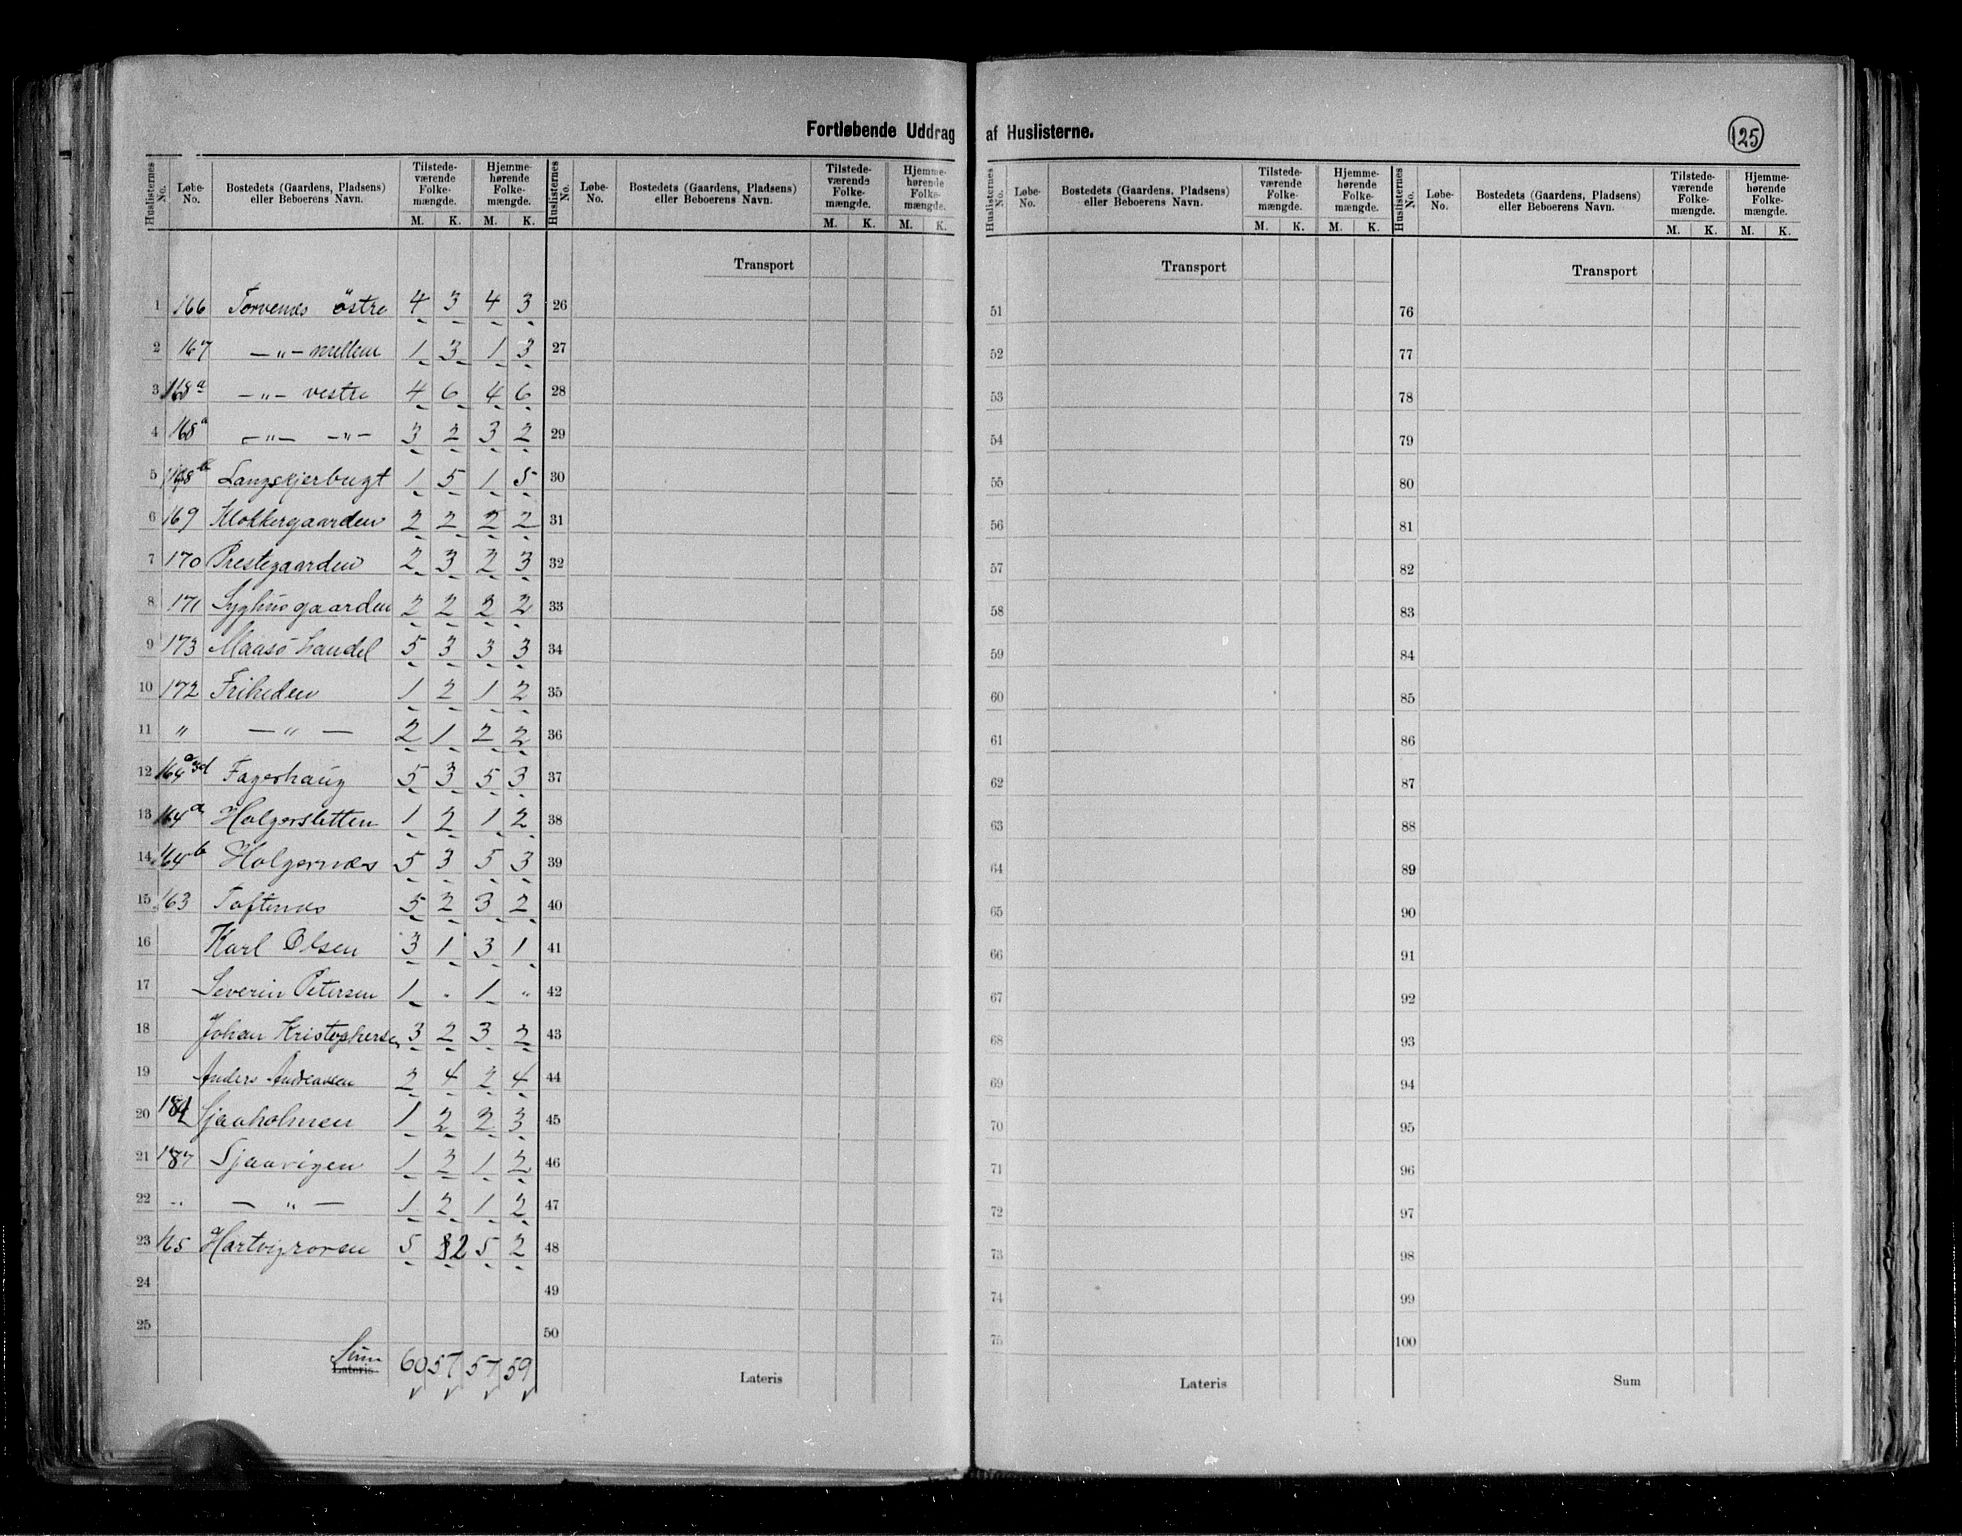 Fortløbende Uddrag af Huslisterne.
125
Huslisternes No. Løbe-No. Bostedets (Gaardens, Pladsens) eller Beboerens Navn. Tilstedeværende Folkemængde. M. K. Hjemmehørende Folkemængde. M. K.
Huslisternes No. Løbe-No. Bostedets (Gaardens, Pladsens) eller Beboerens Navn. Tilstedeværende Folkemængde. M. K. Hjemmehørende Folkemængde. M. K.
Huslisternes No. Løbe-No. Bostedets (Gaardens, Pladsens) eller Beboerens Navn. Tilstedeværende Folkemængde. M. K. Hjemmehørende Folkemængde. M. K.
Huslisternes No. Løbe-No. Bostedets (Gaardens, Pladsens) eller Beboerens Navn. Tilstedeværende Folkemængde. M. K. Hjemmehørende Folkemængde. M. K.
1 166 Torvenes östre 4 3 4 3
2 167 — „ — mellem 1 3 1 3
3 168 a — „ — vestre 4 6 4 6
4 168 a — „ — — „ — 3 2 3 2
5 168 Langskjerbugt 1 5 1 5
6 169 Klokkergaarden 2 2 2 2
7 170 Prestegaarden 2 3 2 3
8 171 Syghusgaarden 2 2 2 2
9 173 Maasö handel 5 3 3 3
10 172 Friheden 1 2 1 2
11 „ — „ — 2 1 2 2
12 164 Fagerhaug 5 3 5 3
13 164 a Holgersletten 1 2 1 2
14 164 b Holgernæs 5 3 5 3
15 163 Toftenes 5 2 3 2
16 Karl Olsen 3 1 3 1
17 Severin Petersen 1 „ 1 „
18 Johan Kristophersen 3 2 3 2
19 Anders Andreassen 2 4 2 4
20 Sjaaholmen 1 2 2 3
21 187 Sjaavigen 1 2 1 2
22 „ — „ — 1 2 1 2
23 165 Hartvigroren 5 2 5 2
24
25
Sum Lateris 60 57 57 59
Transport
26
27
28
29
30
31
32
33
34
35
36
37
38
39
40
41
42
43
44
45
46
47
48
49
50
Lateris
Transport
51
52
53
54
55
56
57
58
59
60
61
62
63
64
65
66
67
68
69
70
71
72
73
74
75
Lateris
Transport
76
77
78
79
80
81
82
83
84
85
86
87
88
89
90
91
92
93
94
95
96
97
98
99
100
Sum